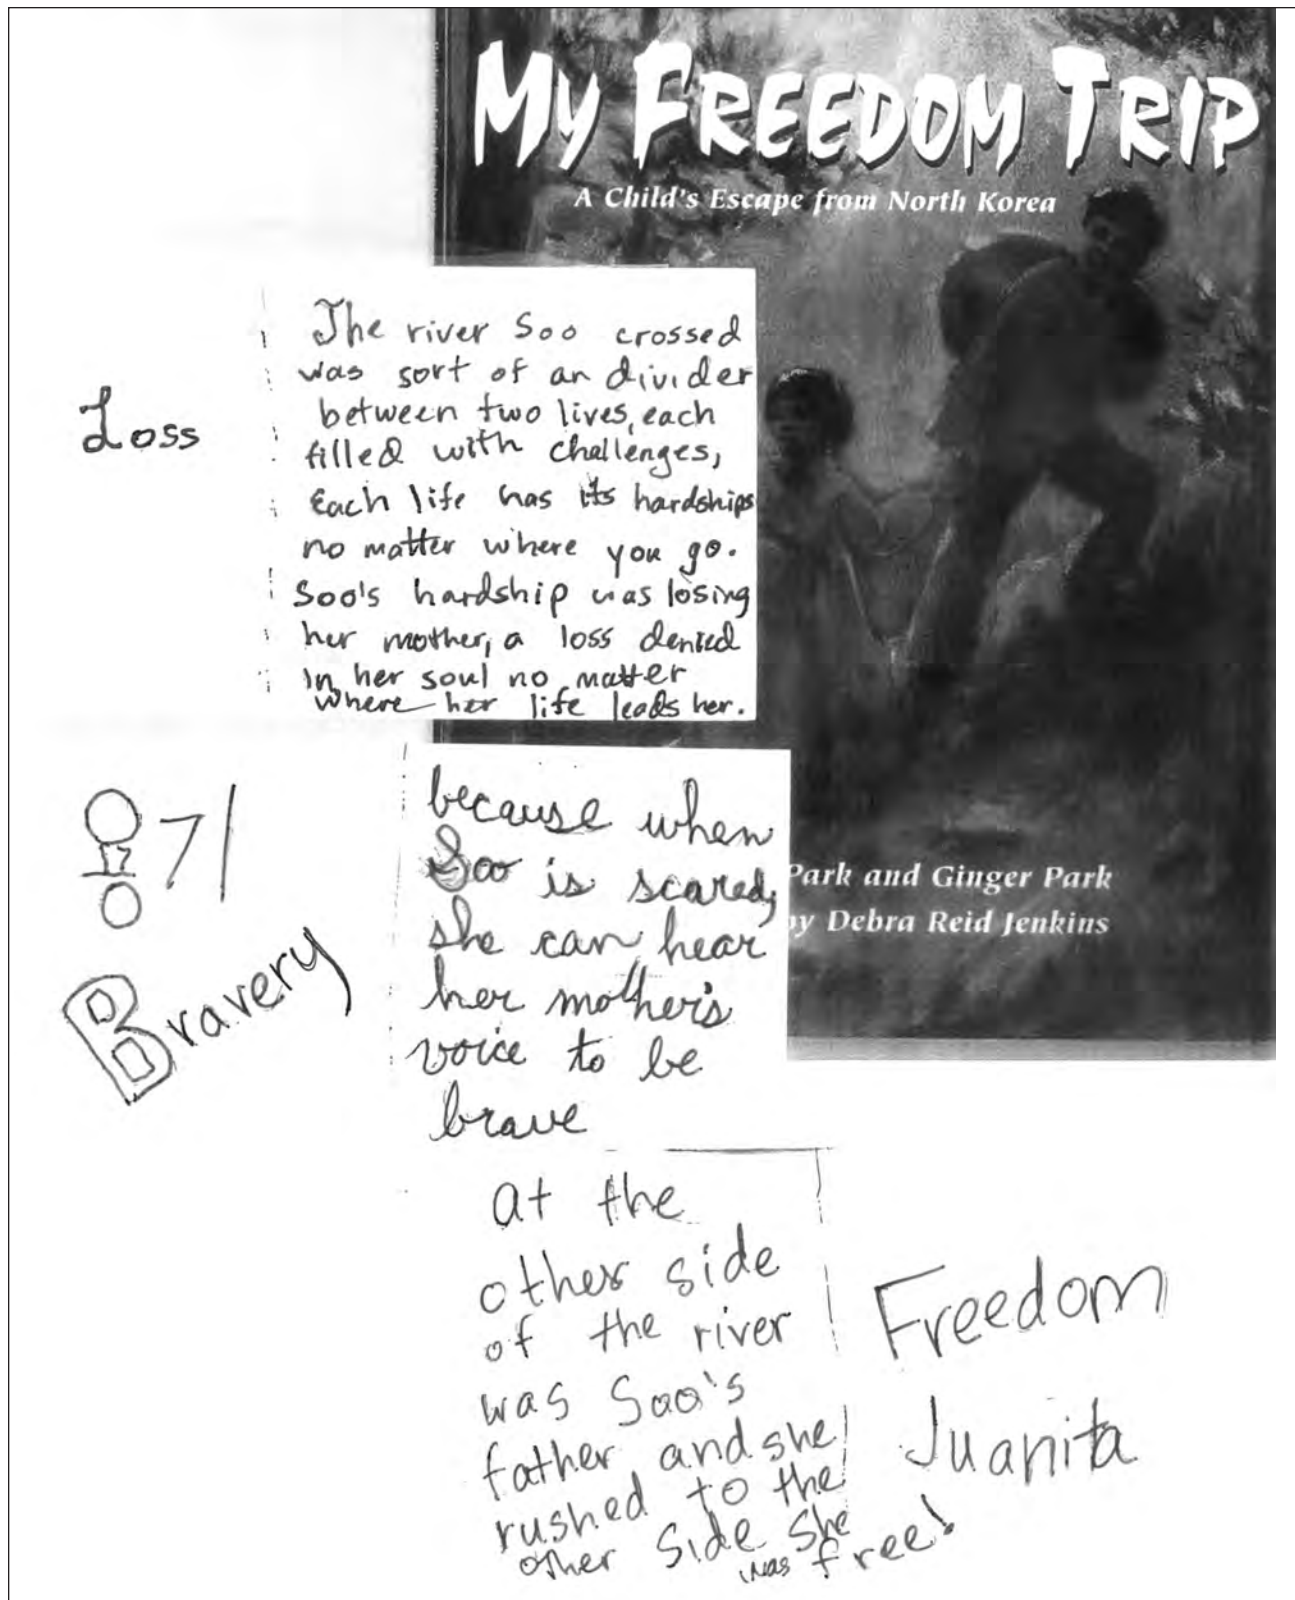 MY FREEDOM TRIP
A Child's Escape from North Korea
Loss
The river Soo crossed
was sort of an divider
between two lives, each
filled with challenges,
Each life has its hardships
no matter where you go.
Soo's hardship was losing
her mother, a loss dented
in her soul no matter
where her life leads her.
용기
Bravery
because when
Soo is scared,
she can hear
her mother's
voice to be
brave
Park and Ginger Park
by Debra Reid Jenkins
at the
other side
of the river
was Soo's
father, and she
rushed to the
other side she
was free!
Freedom
Juanita